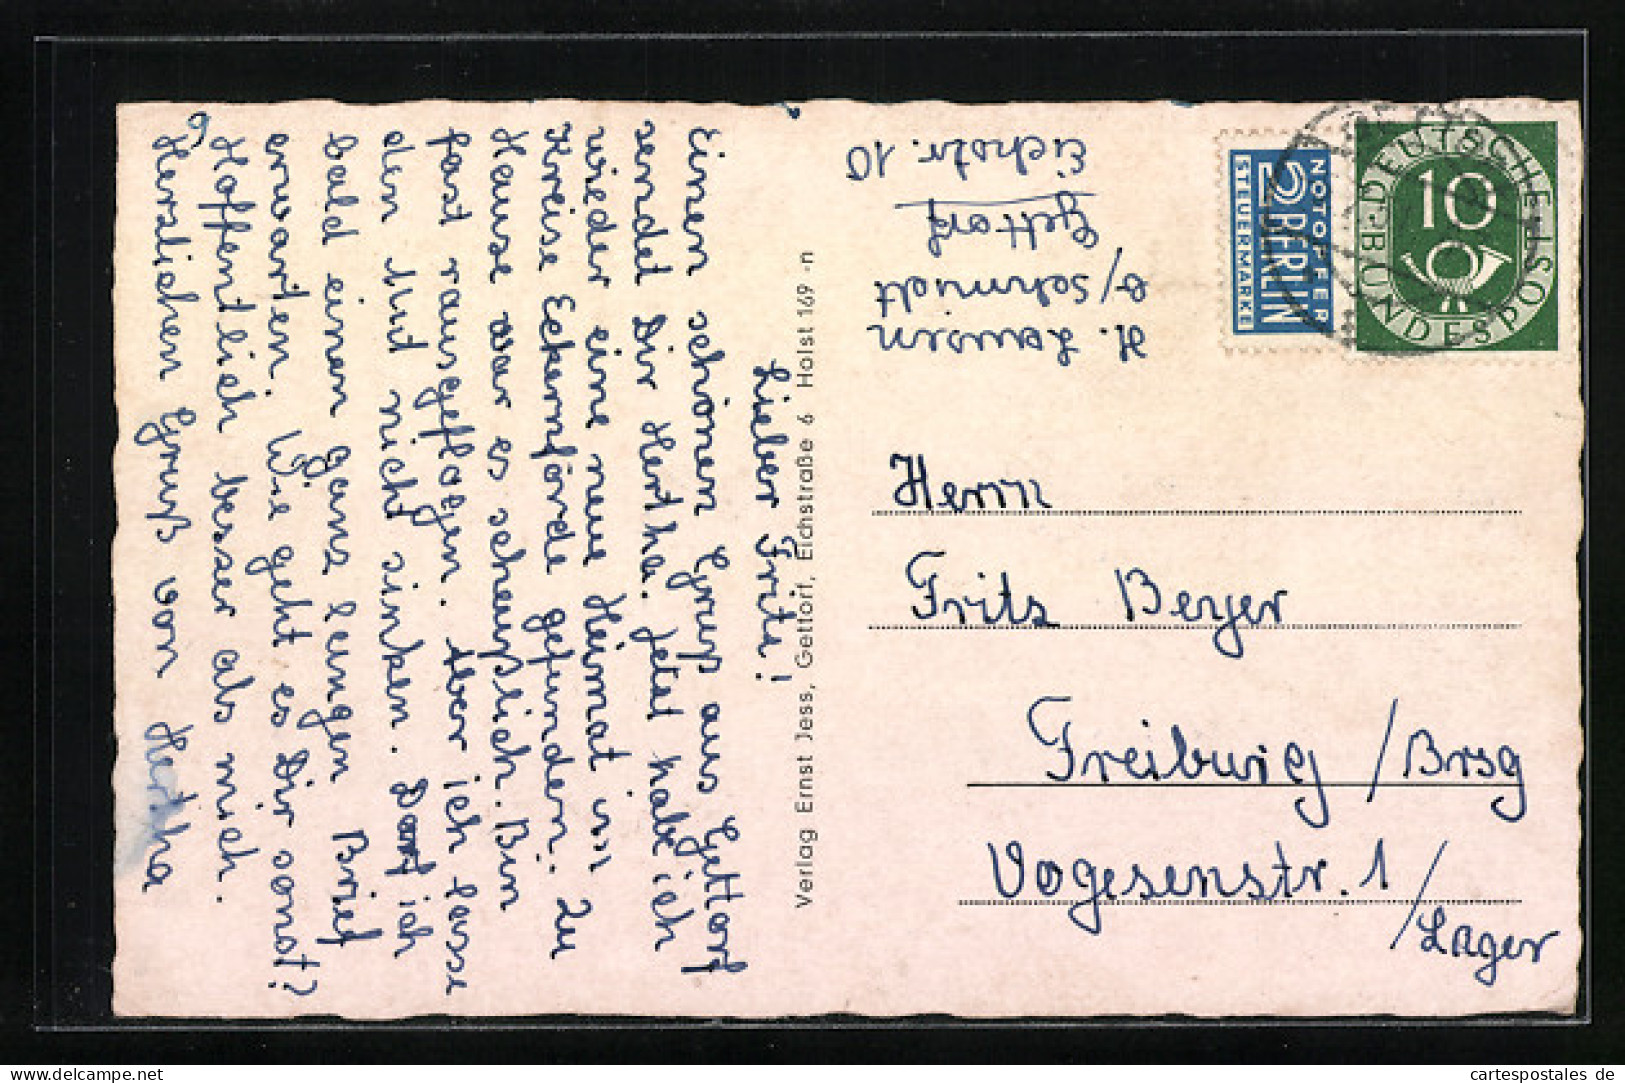 Lieber Fritz!
Einen schönen Gruß aus Gettorf
sendet Dir Hertha. Jetzt habe ich
wieder eine neue Heimat im
Kreise Eckernförde gefunden. Zu
Hause war es scheußlich. Bin
fast rausgeflogen. Aber ich lasse
den Mut nicht sinken. Darf ich
bald einen ganz langen Brief
erwarten. Wie geht es Dir sonst?
Hoffentlich besser als mich.
Herzlichen Gruß von Hertha
Verlag Ernst Jess, Gettorf, Eichstraße 6 Holst 169 -n
H.
b/ Schmidt
Gettorf
Eichstr. 10
NOTOPFER
2 BERLIN
STEUERMARKE
DEUTSCHE
10
BUNDESPOST
Herrn
Fritz Beyer
Freiburg /Brsg
Vogesenstr. 1/
Lager
cartespostales de
www.delcampe.net